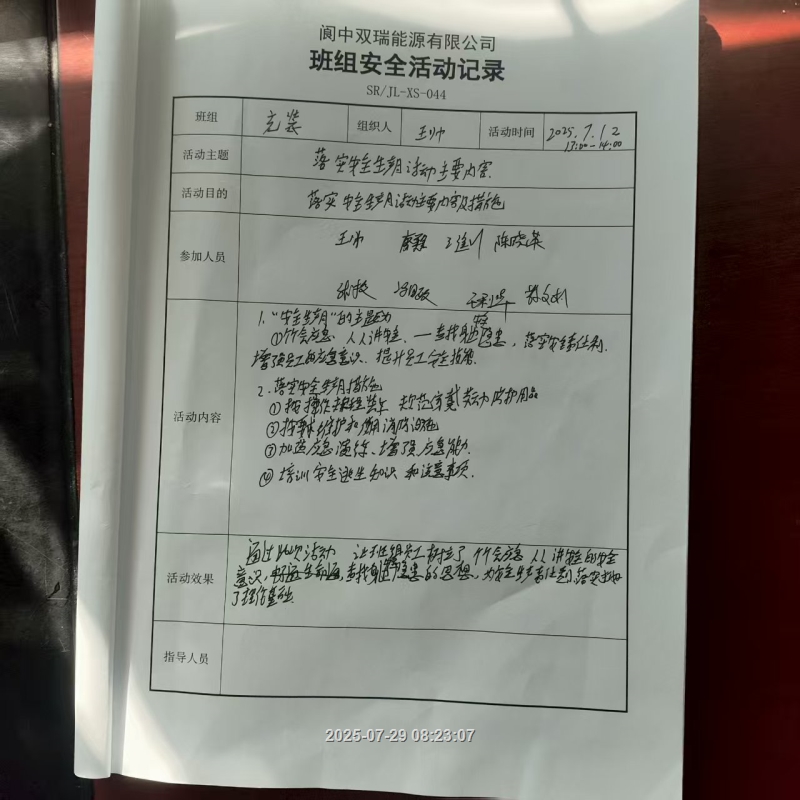 阆中双瑞能源有限公司
班组安全活动记录
SR/JL-XS-044
班组 充装 组织人 王帅 活动时间 2025.7.12
13:00-14:00
活动主题 落实安全生产月活动主要内容.
活动目的 落实安全生产月活动主要内容及措施
参加人员 王帅
活动内容
1."安全生产月"的主题为
①个个会应急、人人讲安全、一查找身边隐患, 落实安全责任制.
增强员工的应急意识、提升员工安全技能.
2.落实安全生产月措施
①按操作规程装车 规范穿戴劳动防护用品
②按要求维护和使用消防设施
③加强应急演练、增强应急能力.
④培训安全逃生知识和注意事项.
活动效果 通过此次活动 让班组员工树立了个个会应急 人人讲安全的安全
意识, 畅通生命通 查找身边隐患的思想, 为安全生产责任制落实
了理论基础.
指导人员
2025-07-29 08:23:07